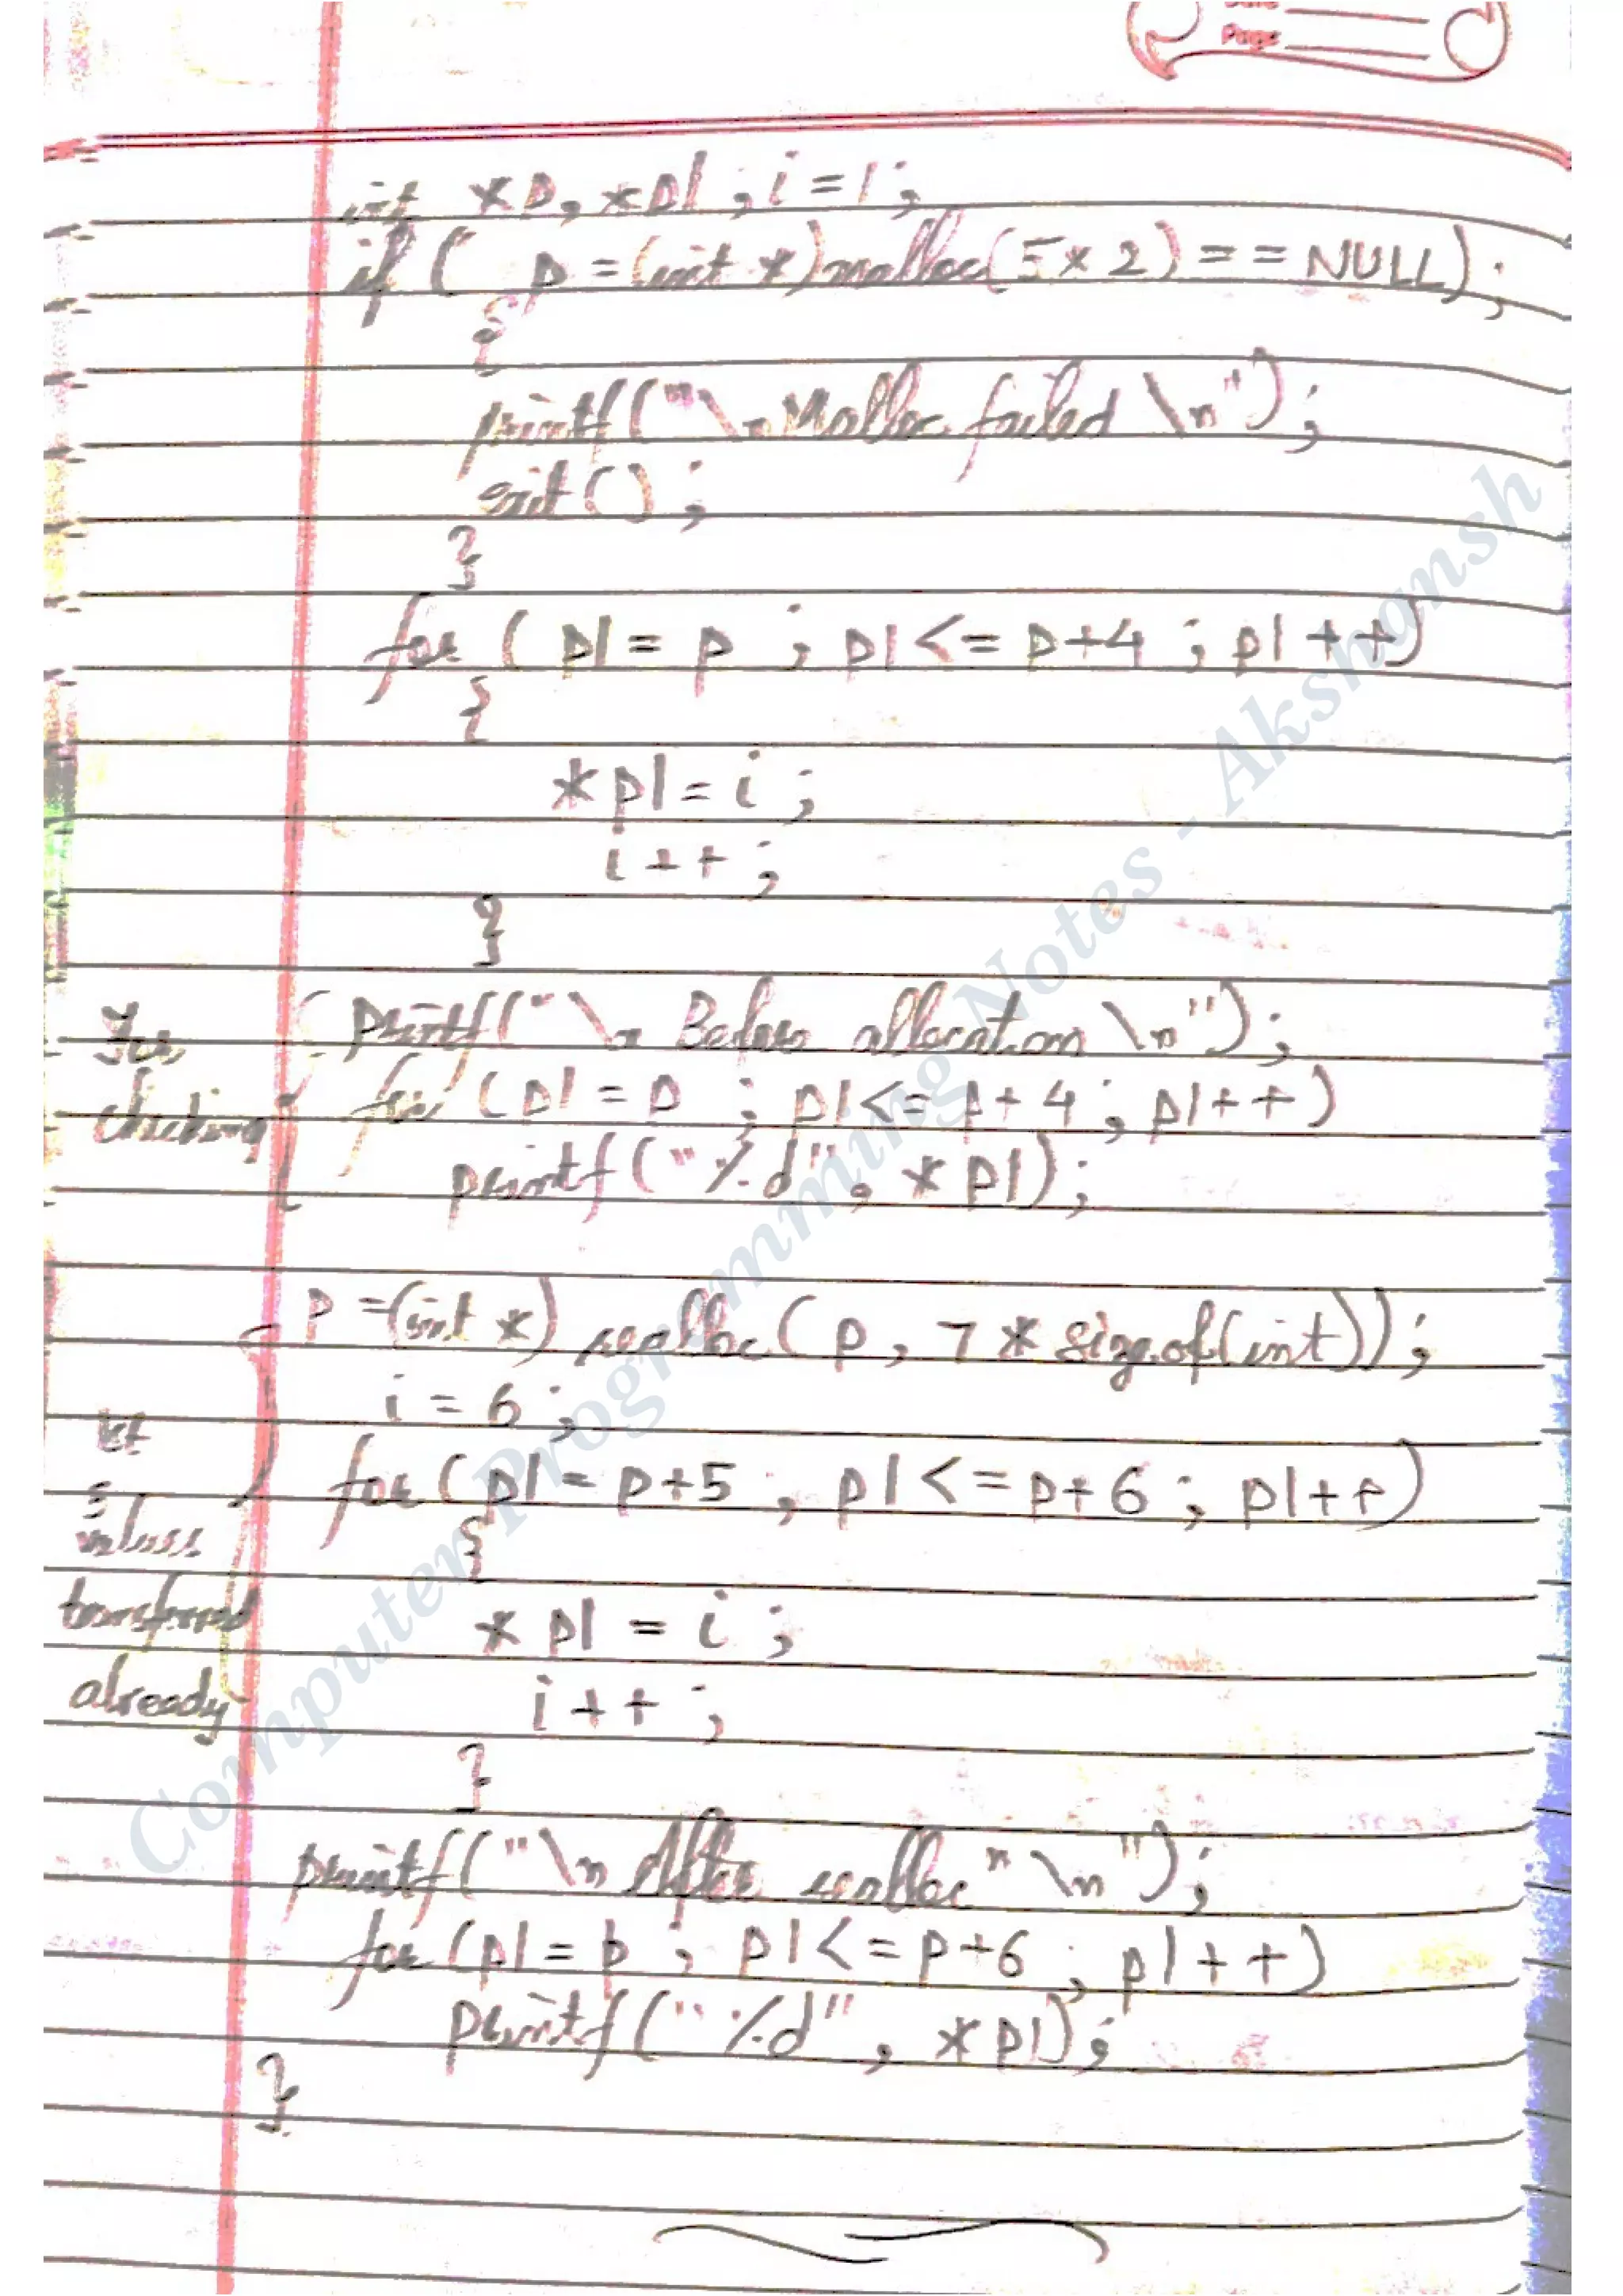 Page
int *p, *p1 ; i = 1 ;
if ( p = (int *) malloc(5 * 2) == NULL) ;
{
printf("\n Malloc failed \n") ;
exit() ;
}
for ( p1 = p ; p1 <= p+4 ; p1++)
{
*p1 = i ;
i++ ;
}
printf("\n Before allocation \n") ;
for (p1 = p ; p1 <= p+4 ; p1++)
checking
printf("%d", *p1) ;
p = (int *) realloc( p, 7 * sizeof(int)) ;
i = 6 ;
for ( p1 = p+5 ; p1 <= p+6 ; p1++)
1st
5
values
{
transferred
*p1 = i ;
already
i++ ;
}
printf("\n After realloc" \n") ;
for (p1 = p ; p1 <= p+6 ; p1++)
printf("%d", *p1) ;
}
Computer Programming Notes - Akshansh